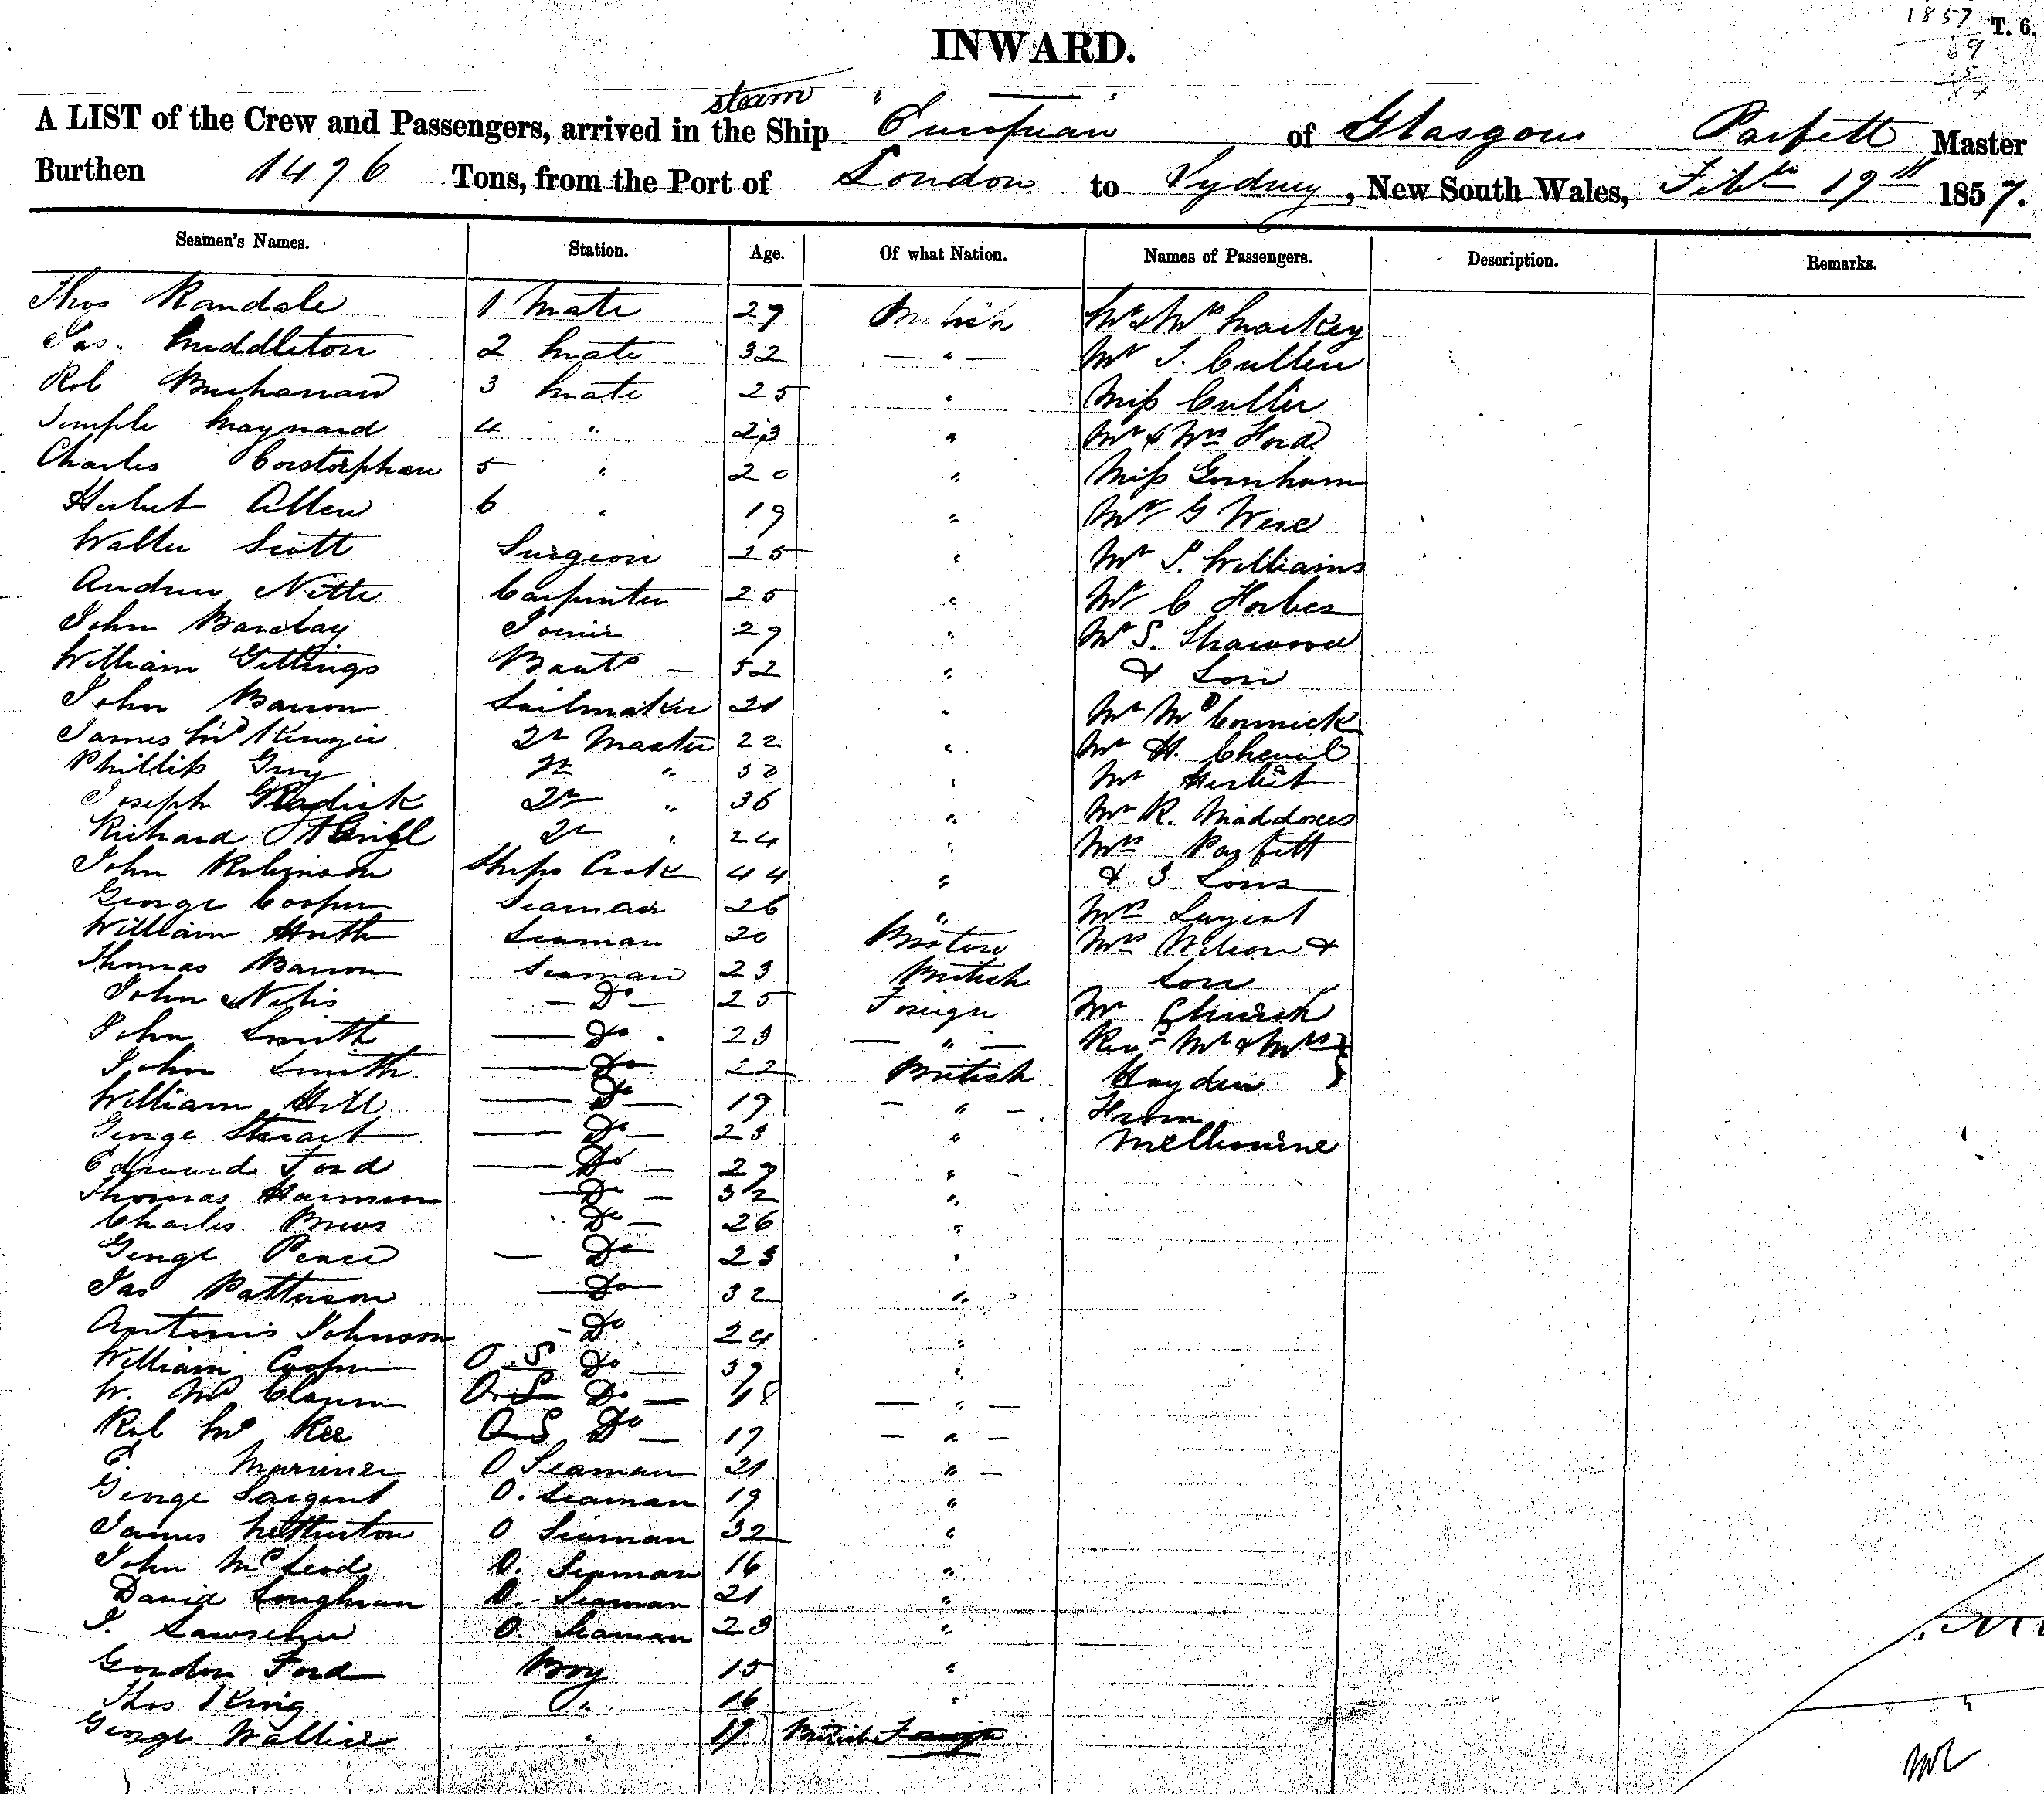 1857 T. 6.
69
INWARD.
steam
A LIST of the Crew and Passengers, arrived in the Ship "European" of Glasgow Parfett Master
Burthen 1496 Tons, from the Port of London to Sydney, New South Wales, 19th 1857.
Seamen's Names. Station. Age. Of what Nation. Names of Passengers. Description. Remarks.
Thos Randale 1 Mate 29 British Mr & Mrs Markey
Jas. Middleton 2 Mate 32 — " — Mr J. Cullen
Rob Buchanan 3 Mate 25 " Miss Cullen
Temple Maynard 4 " 23 " Mr & Mrs Ford
Charles Corstorphan 5 " 20 " Miss Gornham
Herbert Allen 6 " 19 " Mr G Were
Walter Scott Surgeon 25 " Mr S. Williams
Andrew Carpenter 25 " Mr C Forbes
John Barclay Joiner 29 " Mr S.
William Gittings 52 " & Son
John Barron Sailmaker 21 " Mr McCormick
James McKenzie Qr Master 22 " Mr H. Cheval
Phillip Guy Qr " 50 " Mr Herbert
Joseph Qr " 36 " Mr R. Maddoxes
Richard Qr " 24 " Mrs Parfett
John Robinson Ships Cook 44 " & 3 Sons
George Cooper Seaman 26 " Mrs Sargent
William Seaman 20 Mrs Wilson &
Thomas Barron Seaman 23 British Son
John — Do — 25 Foreign Mr Church
John Smith — Do . 23 — " — Revd Mr & Mrs }
John Smith — Do 22 British Hayden
William Hill — Do — 19 — " — From
George Stuart — Do — 23 " Melbourne
Edward Ford — Do — 29 "
Thomas Harmer — Do — 32 "
Charles Do — 26 "
George Pearce — Do 23 "
Jas Patterson — Do — 32 "
Antonis Johnson - Do 24 "
William Cooper O. S Do — 39 "
W. Mc O. S Do — 18 — " —
Rob McKee O S Do — 19 — " —
E. Mariner O Seaman 21 " —
George Sargent O. Seaman 19 "
James O Seaman 32 "
John McLeod O. Seaman 16 "
David Loughran O. Seaman 21 "
J. Lawrence O. Seaman 23 "
Gordon Ford Boy 15 "
Thos King " 16 "
George Wallice " 17 British Foreign